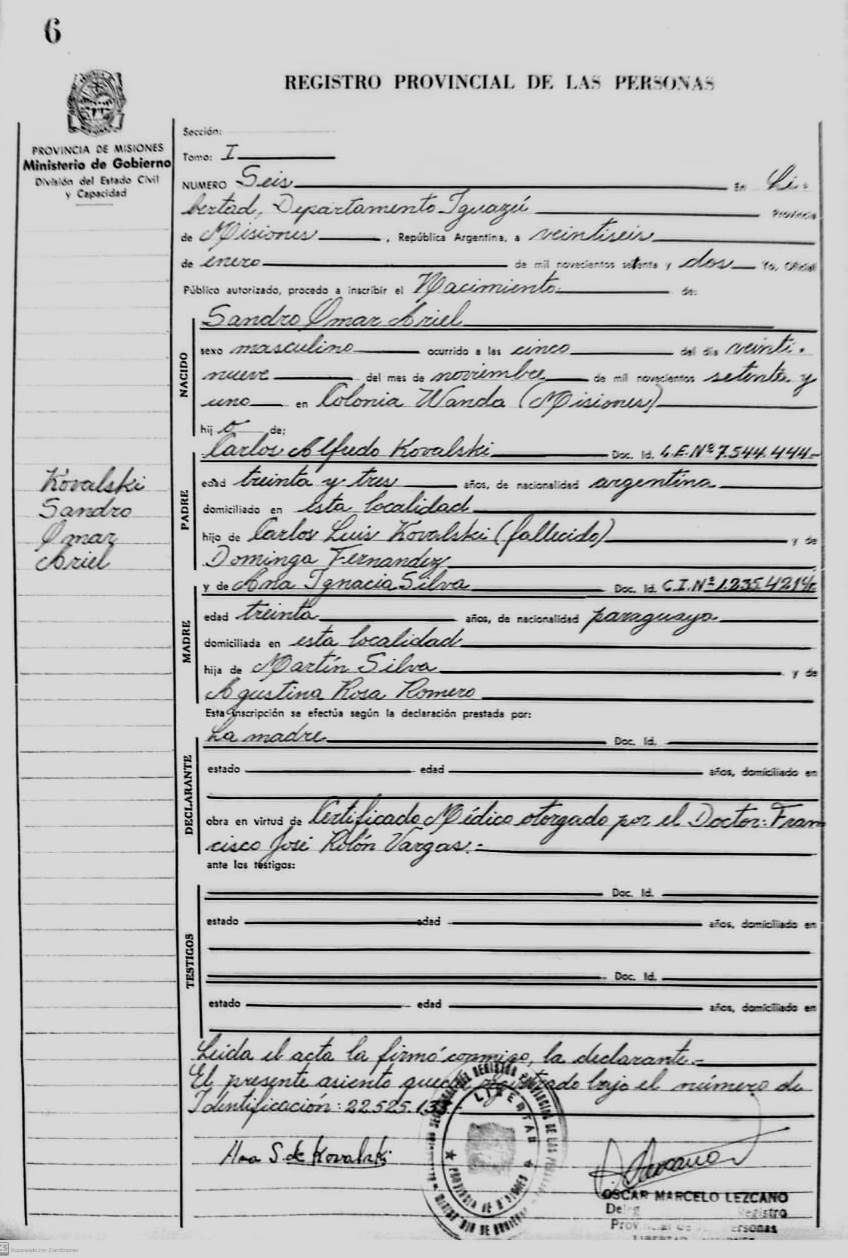 6
REGISTRO PROVINCIAL DE LAS PERSONAS
PROVINCIA DE MISIONES
Ministerio de Gobierno
División del Estado Civil
y Capacidad
Sección:
Tomo: I
NUMERO Seis En Li-
bertad, Departamento Iguazú Provincia
de Misiones, República Argentina, a veintiseis
de enero de mil novecientos setenta y dos Yo, Oficial
Público autorizado, procedo a inscribir el Nacimiento de:
NACIDO
Sandro Omar Ariel
sexo masculino ocurrido a las cinco del día veinti-
nueve del mes de noviembre de mil novecientos setenta y
uno en Colonia Wanda (Misiones)
hijo de:
Kovalski
Sandro
Omar
Ariel
PADRE
Carlos Alfredo Kovalski Doc. Id. L.E. Nº 7.544.444.-
edad treinta y tres años, de nacionalidad argentina
domiciliado en esta localidad
hijo de Carlos Luis Kovalski (fallecido) y de
Dominga Fernandez
MADRE
y de Ana Ignacia Silva Doc. Id. C.I. Nº
edad treinta años, de nacionalidad paraguaya
domiciliada en esta localidad
hija de Martín Silva y de
Agustina Rosa Romero
Esta inscripción se efectúa según la declaración prestada por:
DECLARANTE
La madre Doc. Id.
estado edad años, domiciliado en
obra en virtud de Certificado Médico otorgado por el Doctor: Fran
cisco José Rolón Vargas.-
ante los testigos:
TESTIGOS
Doc. Id.
estado edad años, domiciliado en
Doc. Id.
estado edad años, domiciliado en
Leida el acta la firmó conmigo, la declarante.-
El presente asiento queda registrado bajo el número de
Identificación: 22.525.
Ana S. de Kovalski
LIBERTAD
PROVINCIA DE MISIONES
OSCAR MARCELO LEZCANO
Registro
Personas